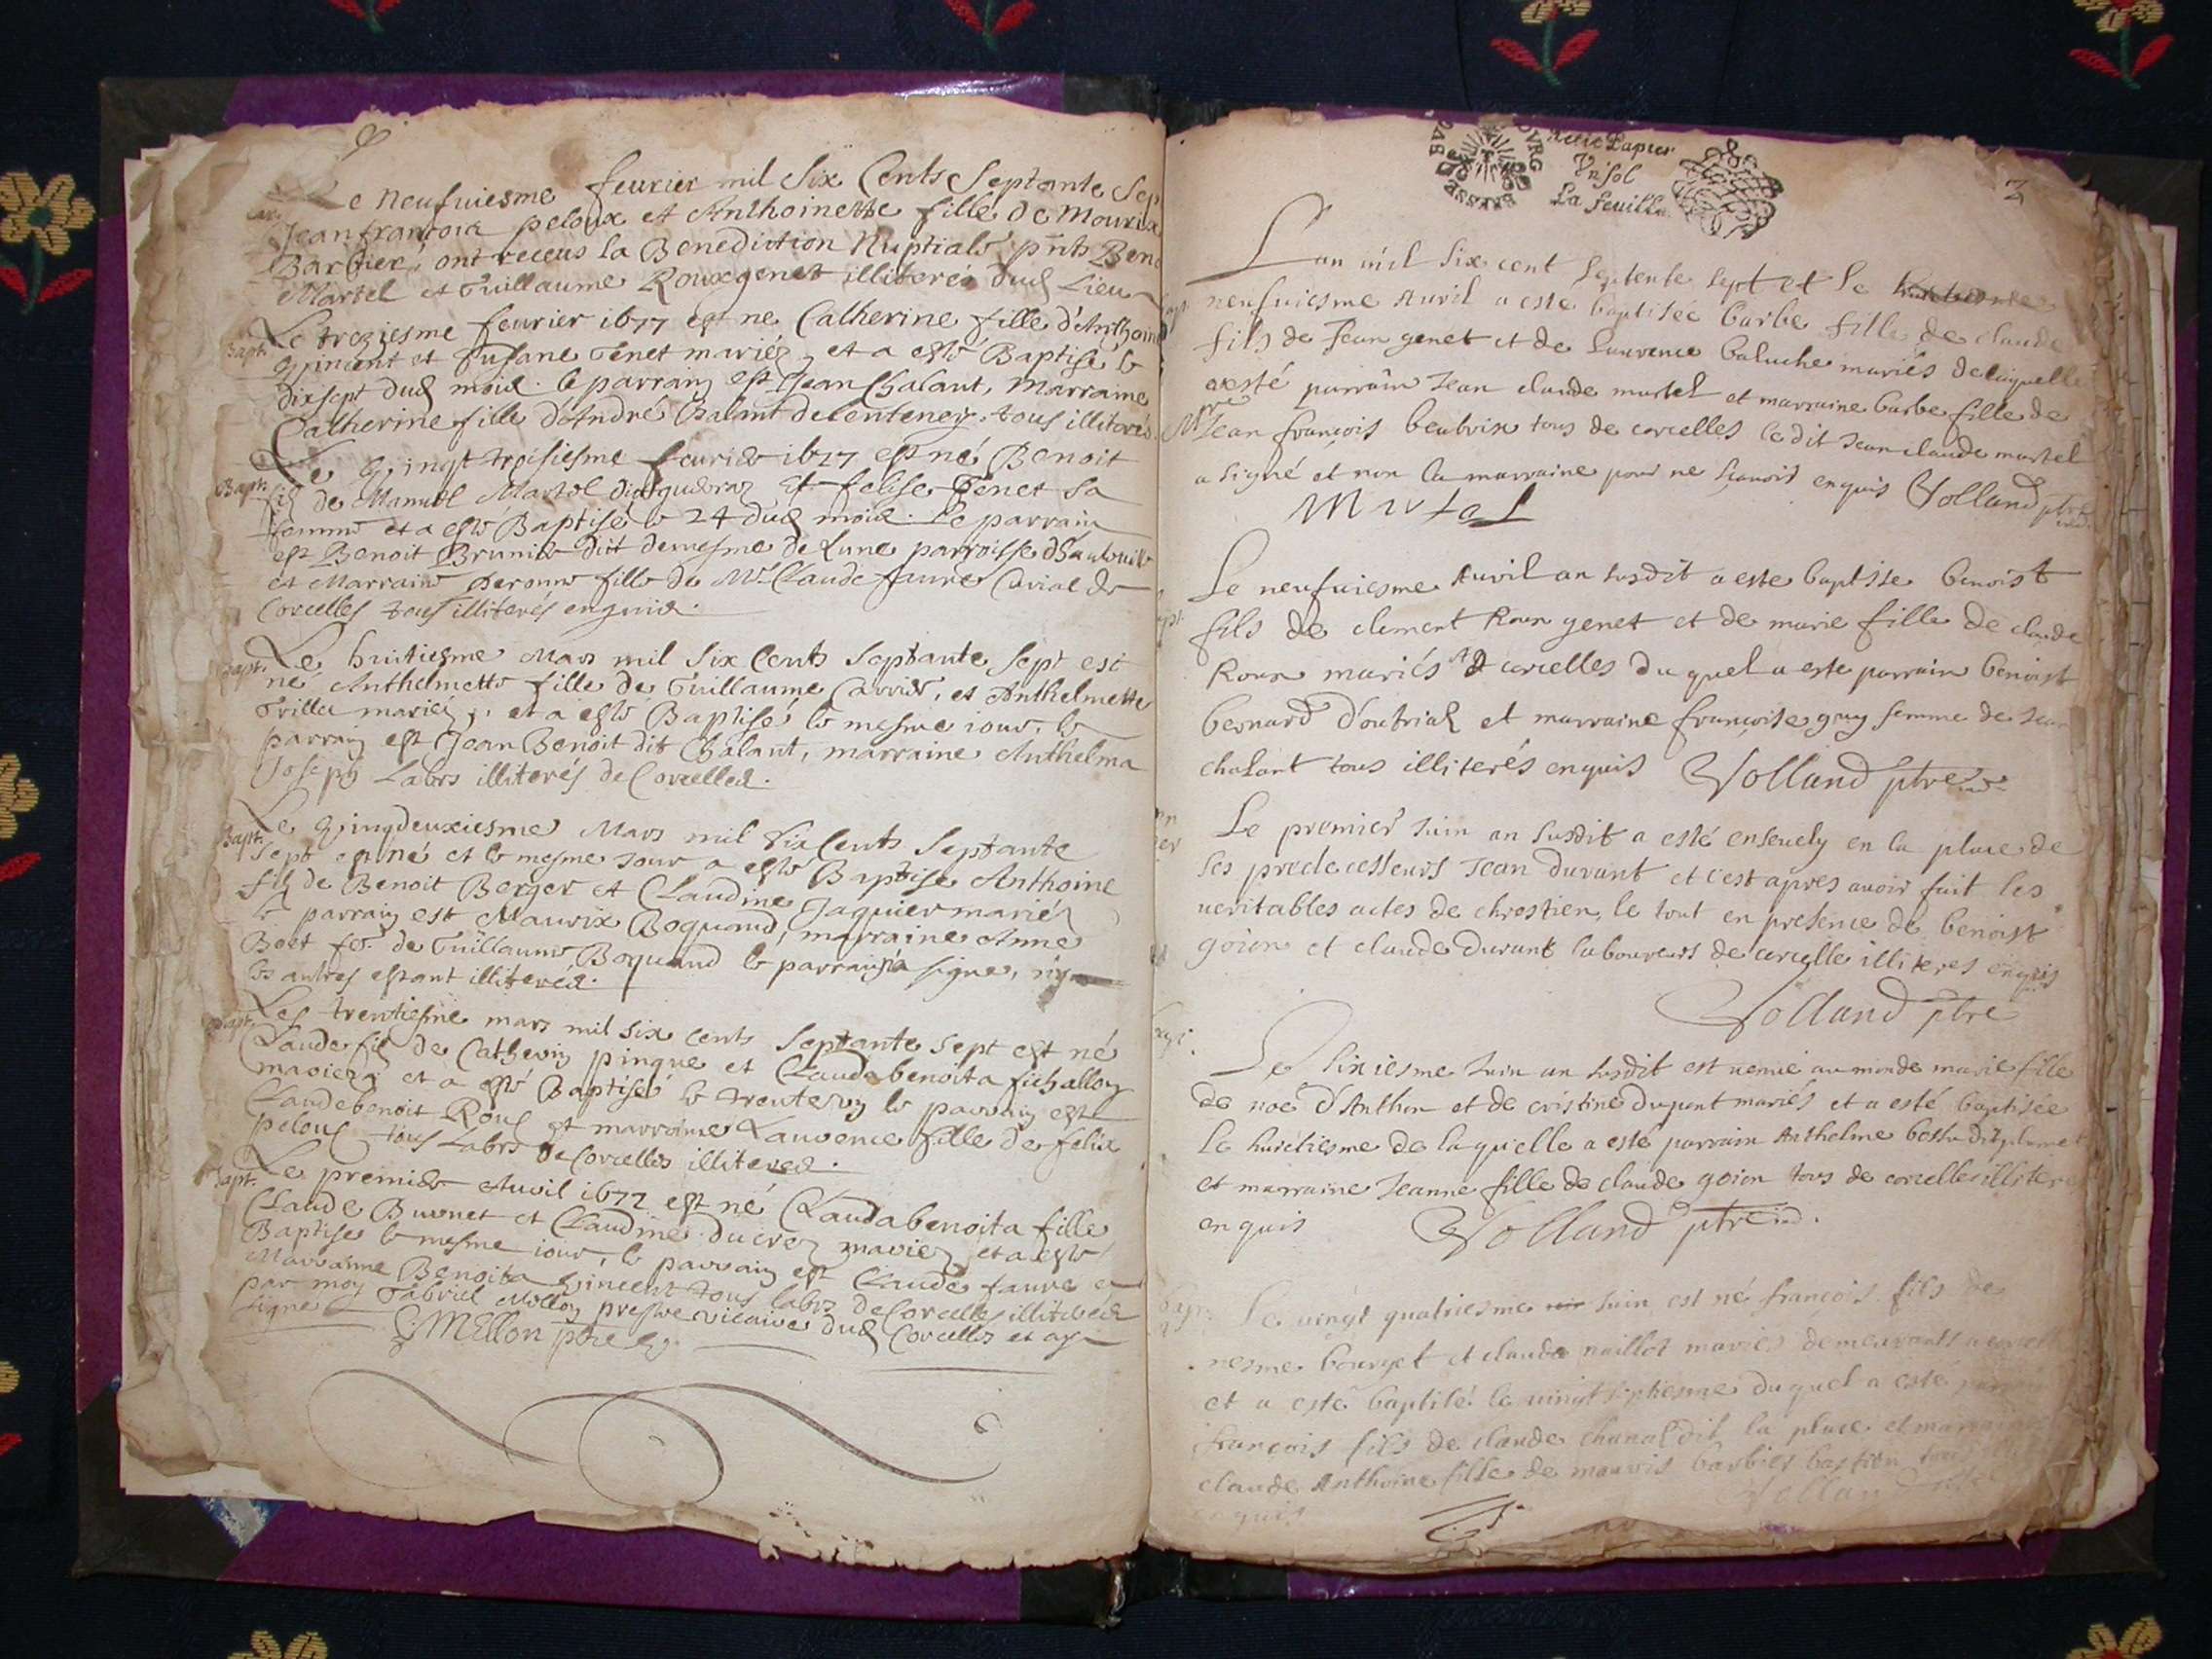 Le neufuiesme feurier mil six Cents Septante Sep
Jean françois peloux et Anthoinette fille de Mourix
Barbier, ont receus la Benediction Nuptiale pnts Beno
Martel et Guillaume Rouxgenet illiterés dud Lieu
Bapt. Le treziesme feurier 1677 est ne Catherine fille d'Anthoine
et Susane Genet mariés, et a esté Baptisé le
dixsept dud mois. le parrain est Jean Chalant, Marraine
Catherine fille d'André Chalant de tous illiterés.
Bapt. Le Vingt troisiesme feurier 1677 est né Benoit
fils de Manuel Martel dit et felise Genet sa
femme et a esté Baptisé le 24 dud mois. Le parrain
est Benoit Brunier dit demesme de Lune parroisse
et Marraine fille de Mr. Claude faure de
Corcelles tous illiterés enquis.
Bapt. Le huitiesme Mars mil Six Cents Septante sept est
né Anthelmette fille de Guillaume Carrier, et Anthelmette
mariés, et a esté Baptisé le mesme iour, le
parrain est Jean Benoit dit Chalant, marraine Anthelma
Joseph Labrs illiterés de Corcelles.
Bapt. Le Vingdeuxiesme Mars mil Six Cents Septante
sept est né et le mesme Jour a esté Baptise Anthoine
fils de Benoit Berger et Claudine Jaquier mariés
le parrain est Maurix Boquand, marraine Anne
Boet fe. de Guillaume Boquand le parrain a signe,
les autres estant illiterés.
Bapt. Les trentiesme mars mil six cents Septante sept est né
Claude fils de Catherin pingue et Claudabenoita
mariez et a esté Baptisé le trente un le parrain est
Claudebenoit Roux et marraine Laurence fille de felix
peloux tous Labrs de Corcelles illiteres.
Bapt. Le premier Avril 1677 est né Claudabenoita fille
Claude Burnet et Claudine ducrez mariez et a esté
Baptise le mesme iour, le parrain est Claude faure et
Marraine Benoita Vincent tous labrs de Corcelles illiteres
par moy Gabriel Mellon prestre vicaire dud Corcelles et ay
signe
G MEllon ptre
BOVRG
BRESSE
Petit Papier
Vn sol
La feuille
2
L'an mil six cent septente sept et le
neufuiesme Auril a este baptisée barbe fille de claude
fils de Jean genet et de Laurence baluche mariés de laquelle
a esté parrain Jean claude martel et marraine barbe fille de
Mre Jean françois beubrix tous de corcelles le dit Jean claude martel
a signé et non la marraine pour ne sçavoir enquis Volland ptre
Martal
Le neufuiesme Auril an susdit a este baptise benoist
fils de clement Roux genet et de marie fille de claude
Roux mariés de corcelles du quel a este parrain benoist
bernard d'outriaz et marraine françoise guy femme de Jean
chalant tous illiterés enquis Volland ptre
Le premier Juin an susdit a esté enseuely en la place de
ses predecesseurs Jean durant et c'est apres auoir fait les
ueritables actes de chrestien, le tout en presence de benoist
goion et claude durant laboureurs de corcelle illiteres enquis
Volland ptre
Le sixiesme Juin an susdit est uenue au monde marie fille
de noé d'Anthon et de cristine dupont mariés et a esté baptisée
le huictiesme de laquelle a esté parrain Anthelme bossu dit plumet
et marraine Jeanne fille de claude goion tous de corcelles illitere
enquis Volland ptre
Le uingt quatriesme Juin est né françois fils de
nesme bourget et claude naillot mariés demeurants a
et a esté baptisé le uingt septiesme duquel a este parrain
françois fils de claude chanal dit la place et marraine
claude Anthoine fille de mauris barbier bastien
enquis Volland